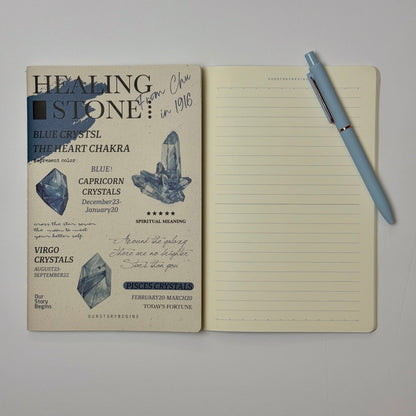 HEALING
STONE
From Chu
in 1916
BLUE CRYSTSL
THE HEART CHAKRA
Represent color
BLUE!
CAPRICORN
CRYSTALS
December23-
January20
★★★★★
SPIRITUAL MEANING
cross the star river
the moon to meet
your better self.
Around the galaxy
There are no brighter
Stars than you
VIRGO
CRYSTALS
AUGUST23-
SEPTEMBER22
PISCES CRYSTALS
FEBRUARY20-MARCH20
TODAY'S FORTUNE
Our
Story
Begins
OURSTORYBEGINS
OURSTORYBEGINS